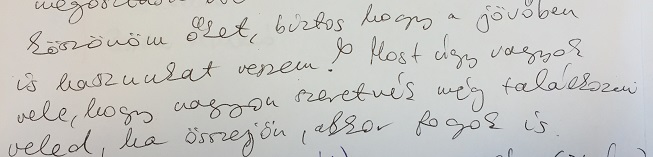 köszönöm őket, biztos hogy a jövőben
is hasznukat veszem! Most úgy vagyok
vele, hogy nagyon szeretnék még találkozni
veled, ha összejön, akkor fogok is.